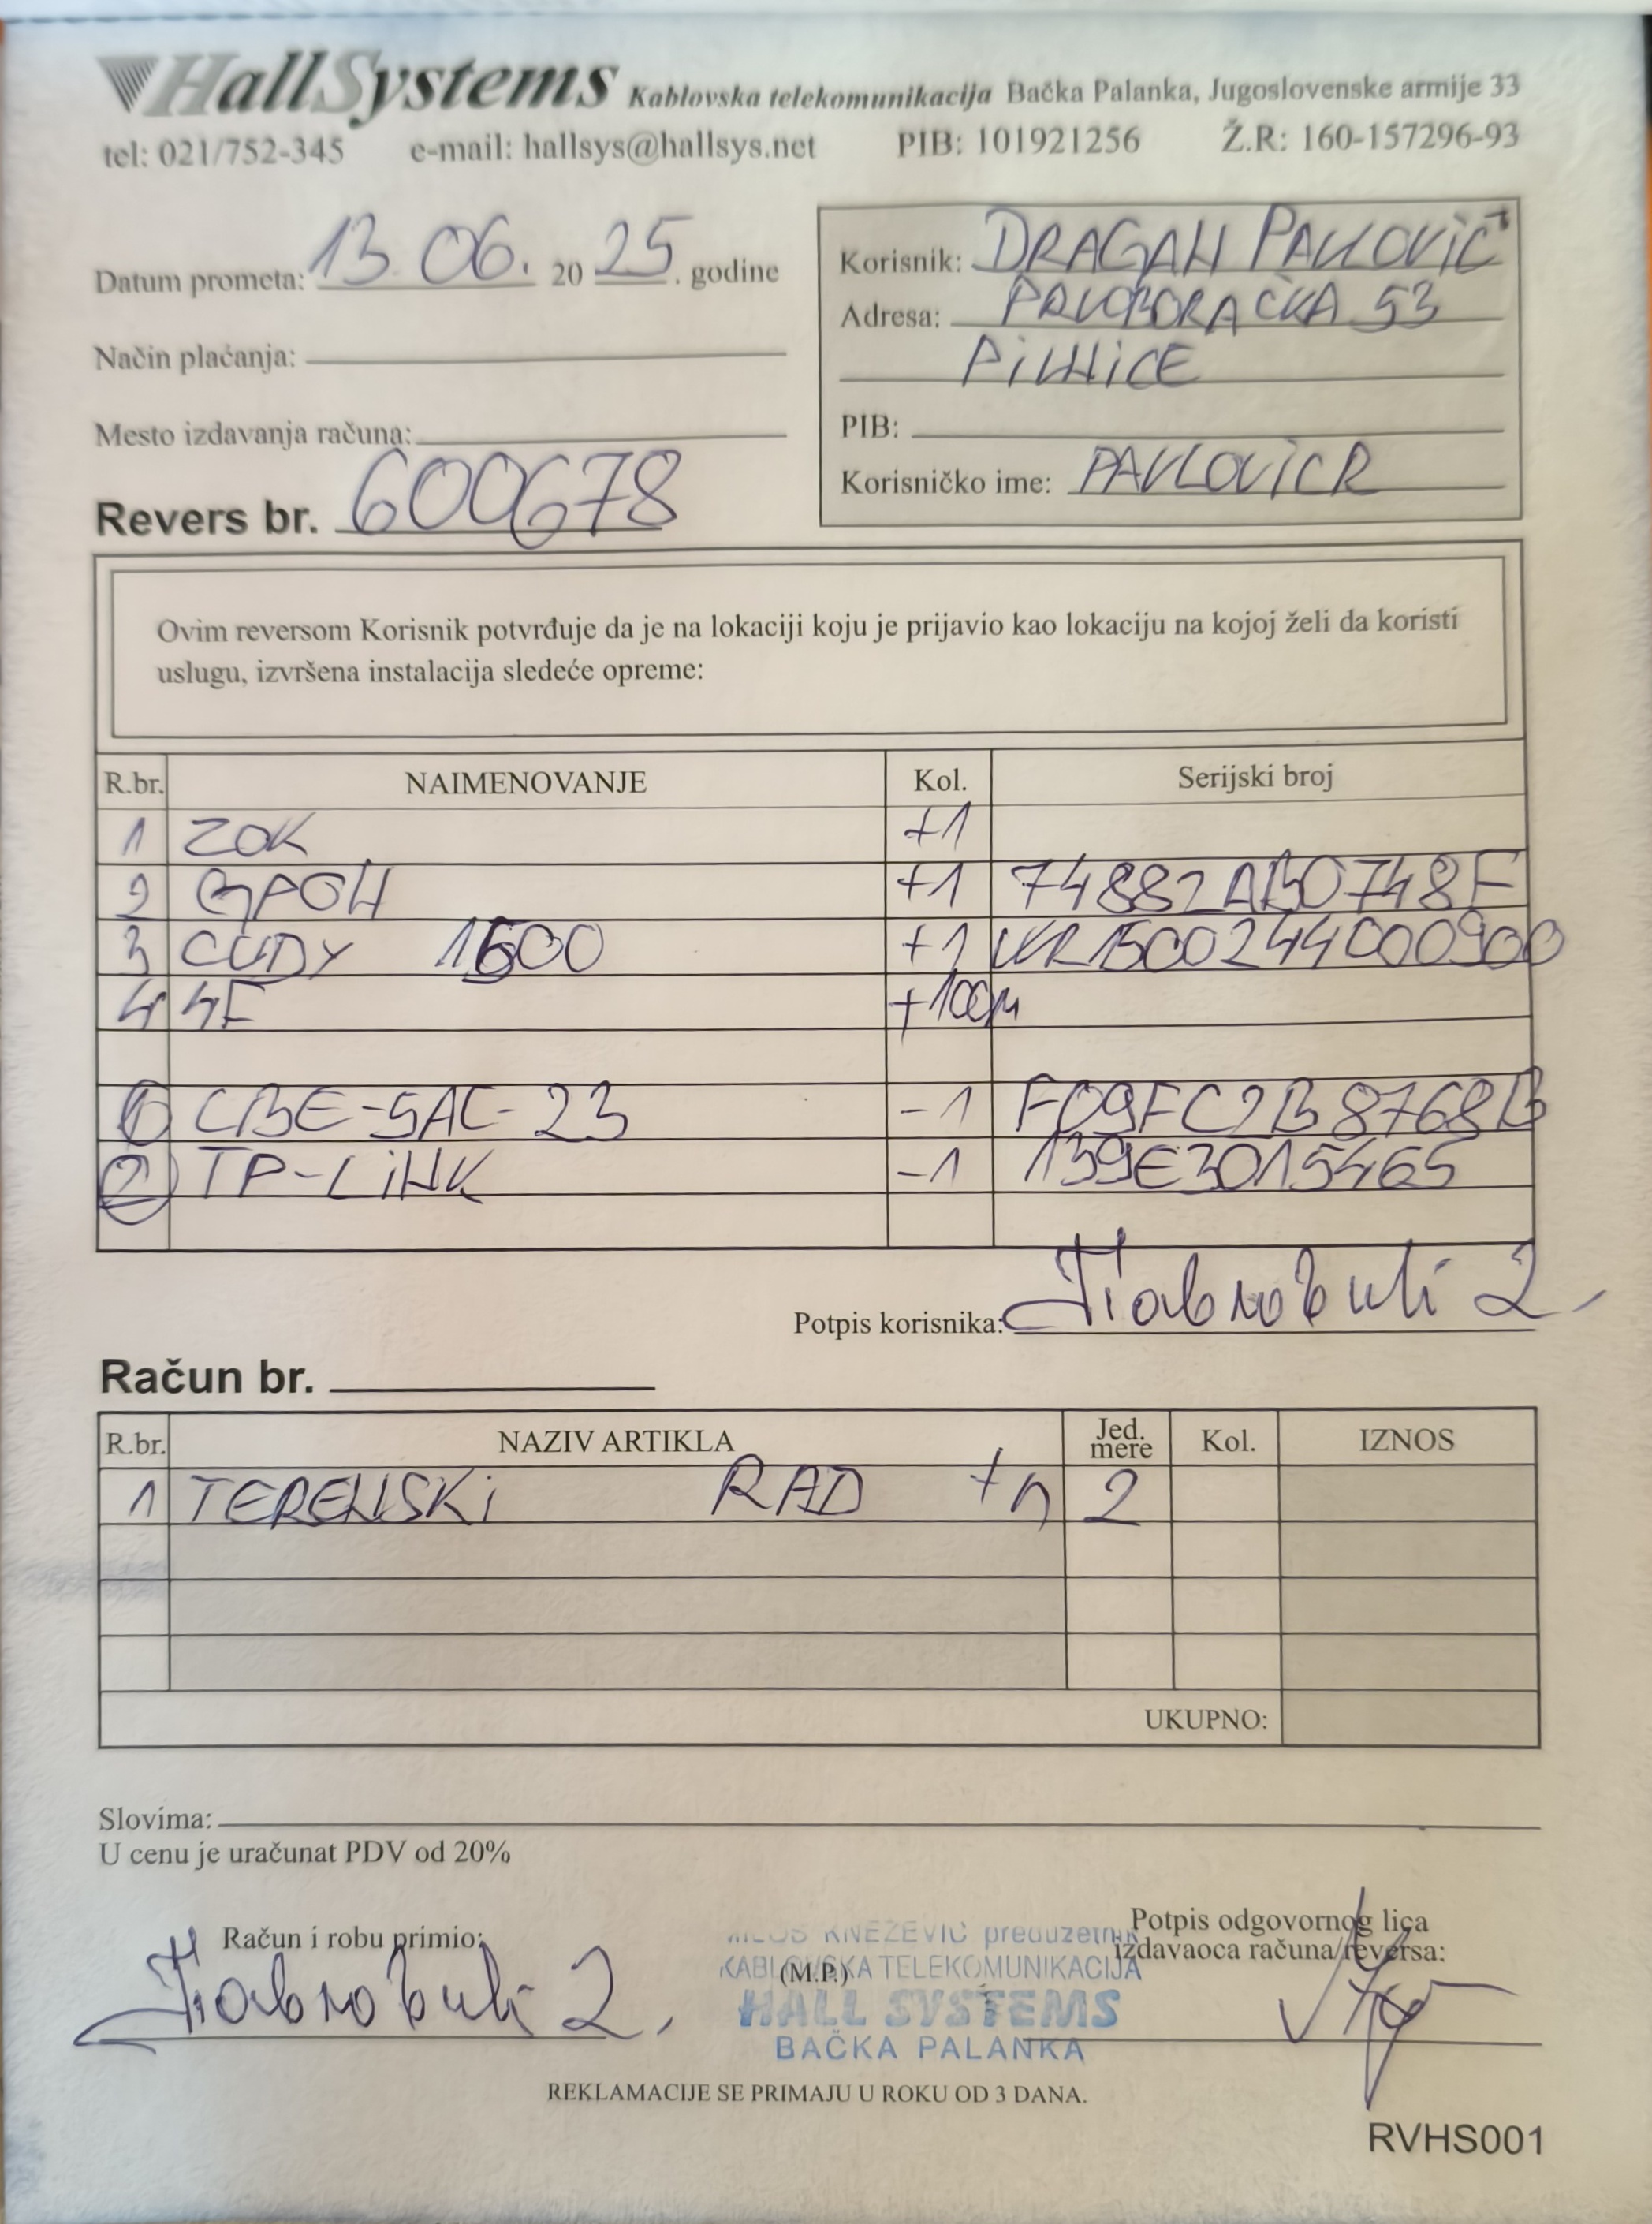 HallSystems Kablovska telekomunikacija Bačka Palanka, Jugoslovenske armije 33
tel: 021/752-345 e-mail: hallsys@hallsys.net PIB: 101921256 Ž.R: 160-157296-93
Datum prometa: 13. 06. 2025. godine
Način plaćanja:
Mesto izdavanja računa:
Revers br. 600678
Korisnik: DRAGAN PAVLOVIĆ
Adresa: PRVOBORAČKA 53
PIVNICE
PIB:
Korisničko ime: PAVLOVICR
Ovim reversom Korisnik potvrđuje da je na lokaciji koju je prijavio kao lokaciju na kojoj želi da koristi
uslugu, izvršena instalacija sledeće opreme:
R.br. NAIMENOVANJE Kol. Serijski broj
1 ZOK +1
2 GPON +1 74882AB0748F
3 CUDY 1500 +1 WR1500244000900
4 4F +100m
1 CBE-5AC-23 -1 F09FC2B8768B
2 TP-LINK -1 139E3015465
Potpis korisnika:
Račun br.
R.br. NAZIV ARTIKLA Jed. mere Kol. IZNOS
1 TERENSKI RAD +n 2
UKUPNO:
Slovima:
U cenu je uračunat PDV od 20%
Račun i robu primio:
(M.P.)
Potpis odgovornog lica
izdavaoca računa/reversa:
KNEŽEVIĆ preduzetnik
KABLOVSKA TELEKOMUNIKACIJA
HALL SYSTEMS
BAČKA PALANKA
REKLAMACIJE SE PRIMAJU U ROKU OD 3 DANA.
RVHS001